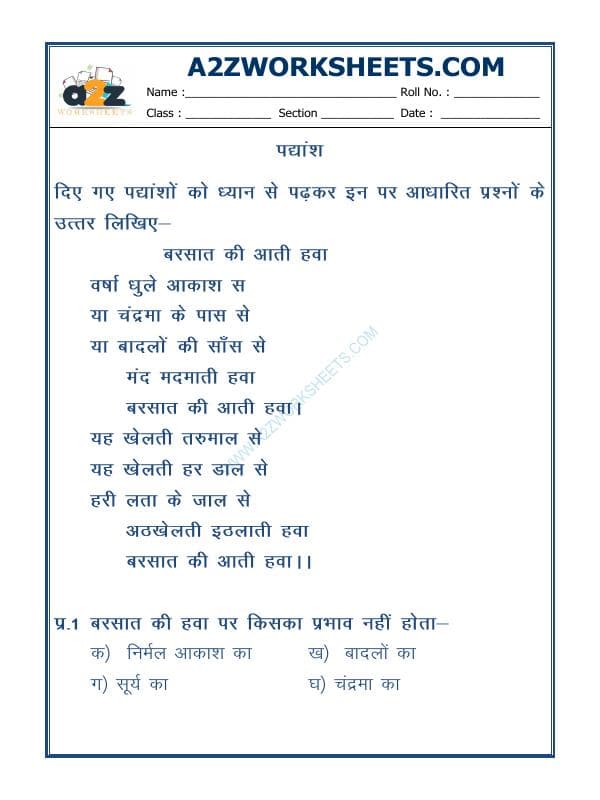 A2ZWORKSHEETS.COM
a2z
WORKSHEETS
Name :__________________________ Roll No. : ____________
Class : ____________ Section __________ Date : ______________
पद्यांश
दिए गए पद्यांशों को ध्यान से पढ़कर इन पर आधारित प्रश्नों के
उत्तर लिखिए–
बरसात की आती हवा
वर्षा धुले आकाश स
या चंद्रमा के पास से
या बादलों की साँस से
मंद मदमाती हवा
बरसात की आती हवा।
यह खेलती तरुमाल से
यह खेलती हर डाल से
हरी लता के जाल से
अठखेलती इठलाती हवा
बरसात की आती हवा।।
WWW.A2ZWORKSHEETS.COM
प्र.1 बरसात की हवा पर किसका प्रभाव नहीं होता–
क) निर्मल आकाश का ख) बादलों का
ग) सूर्य का घ) चंद्रमा का